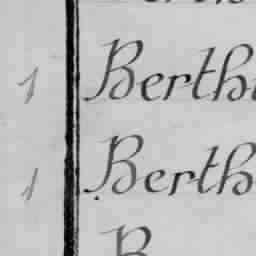 1 Berth
1 Berth